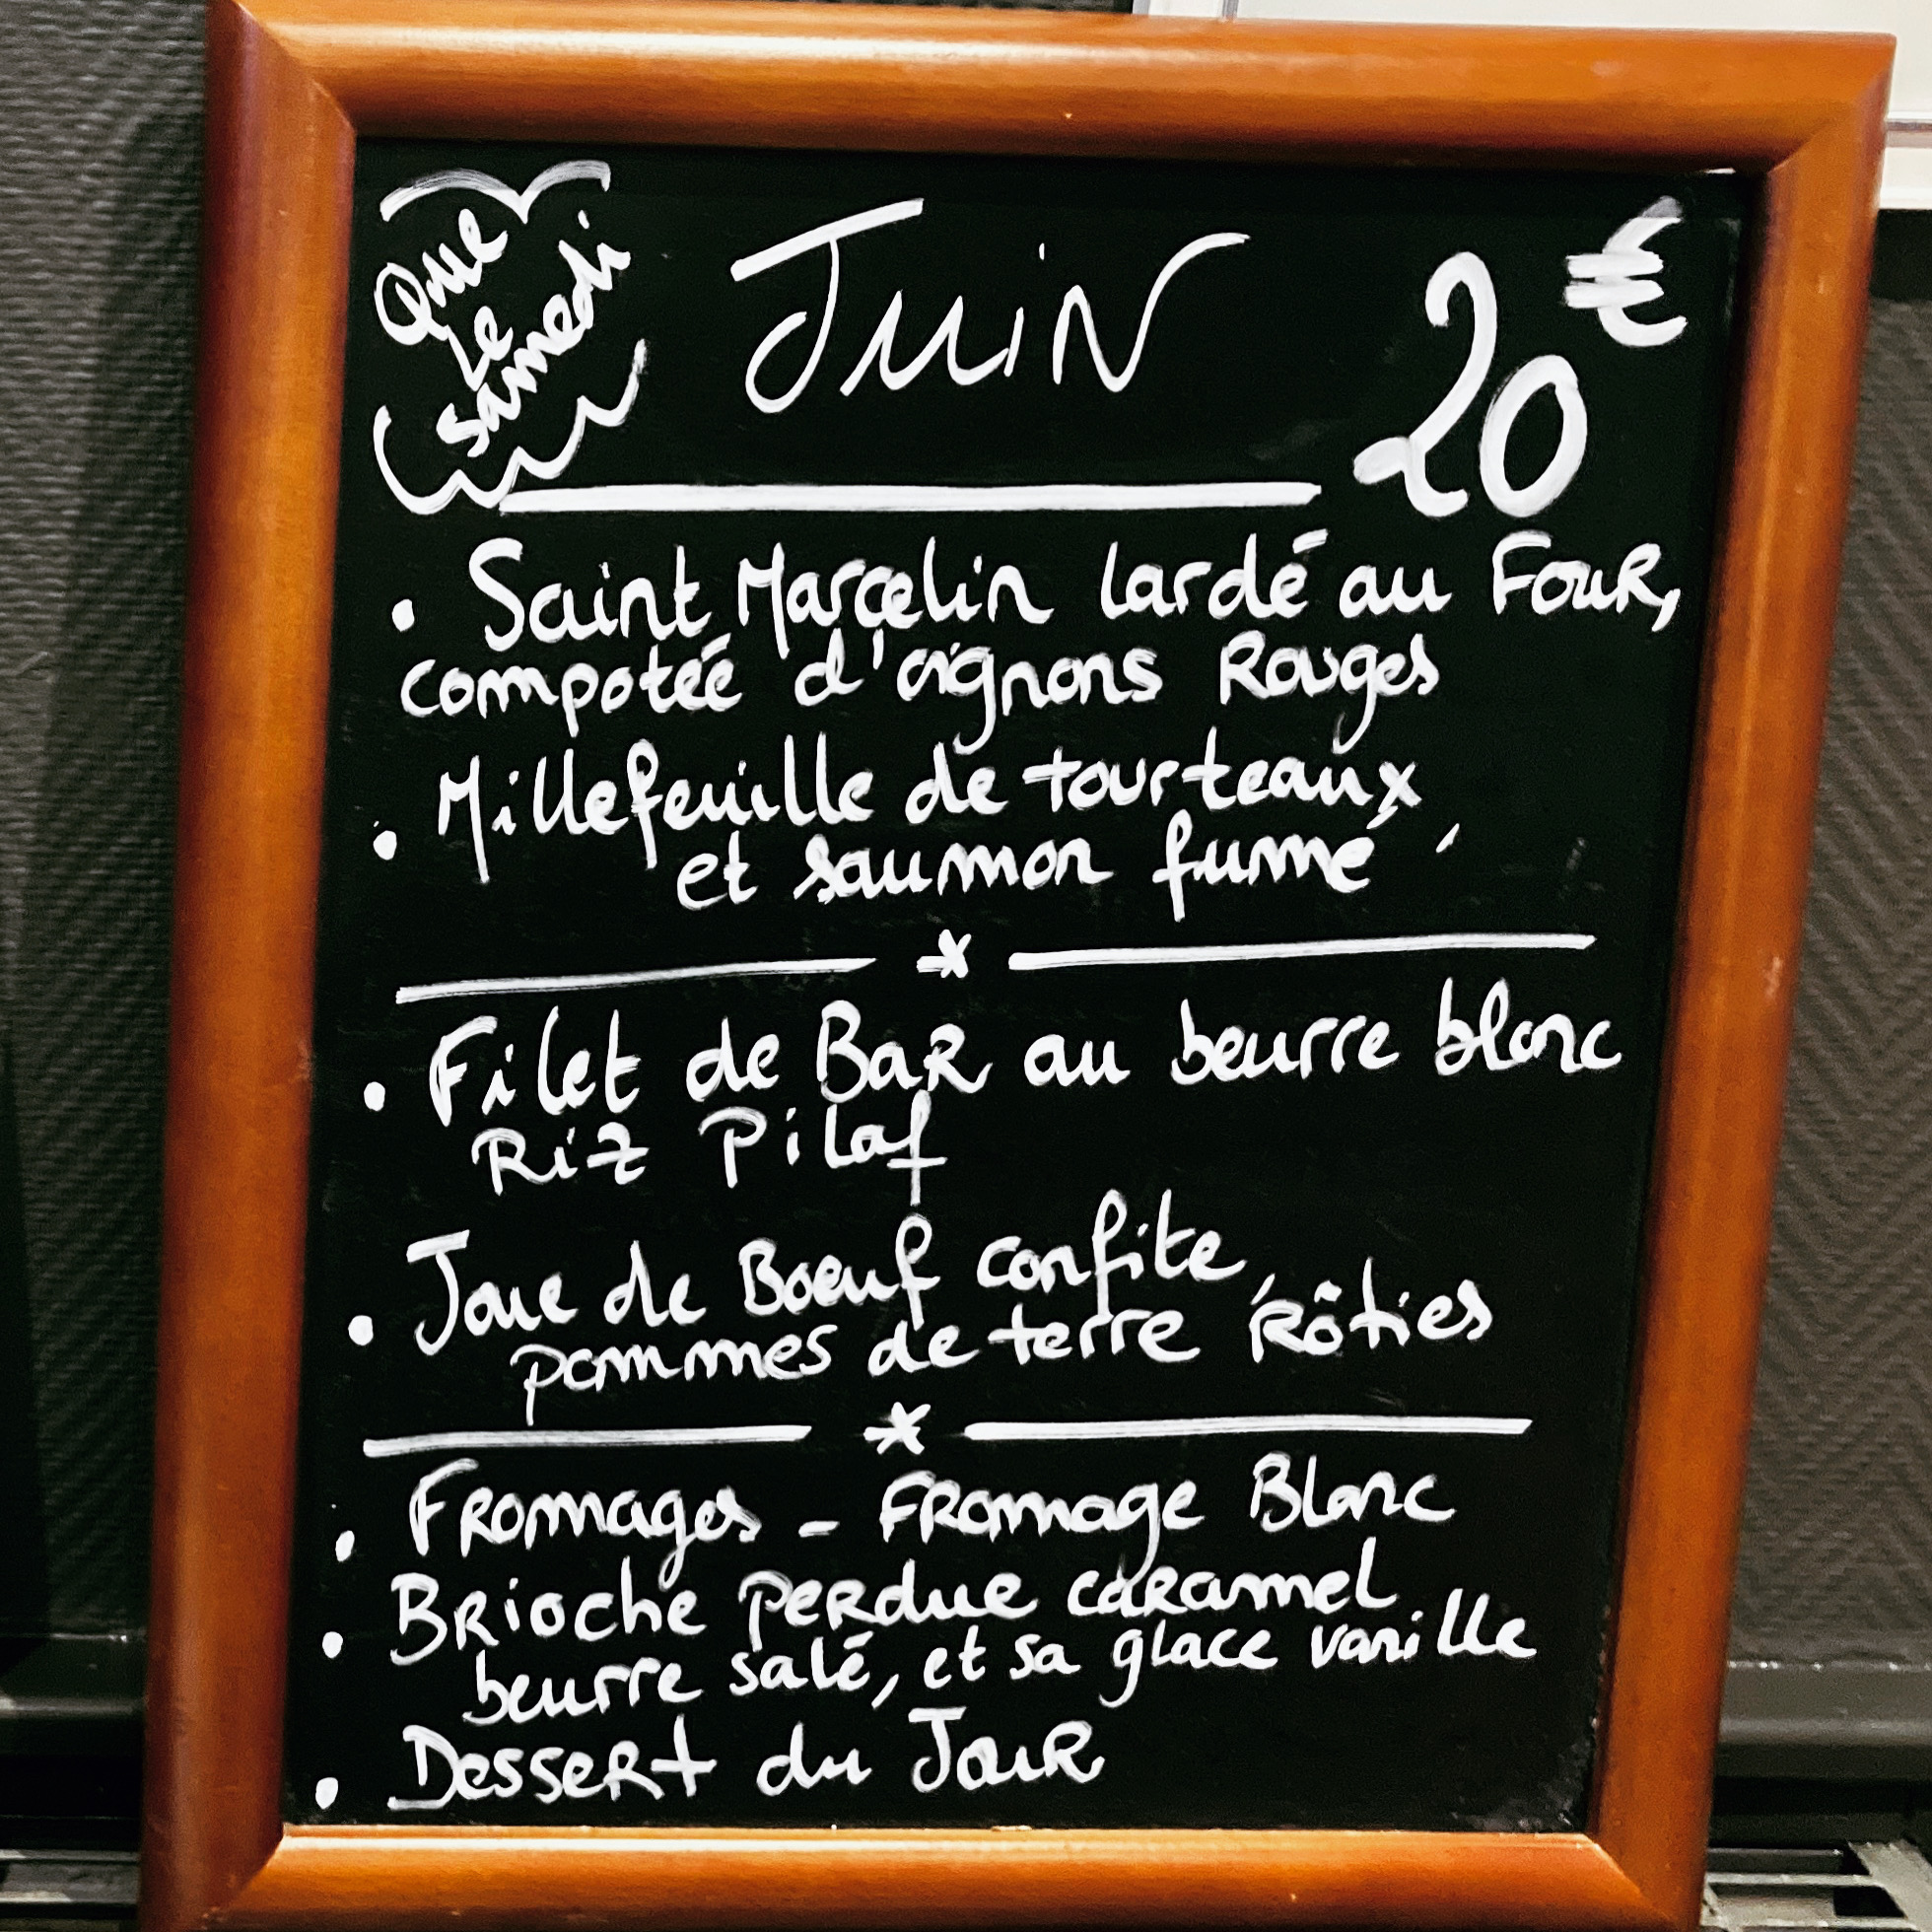 Que
le
samedi
Juin
20€
• Saint Marcelin lardé au Four,
compotée d'oignons Rouges
• Millefeuille de tourteaux
et saumon fumé
*
• Filet de Bar au beurre blanc
Riz Pilaf
• Joue de Boeuf confite,
pommes de terre Rôties
*
• Fromages - Fromage Blanc
• Brioche perdue caramel
beurre salé, et sa glace vanille
• Dessert du Jour